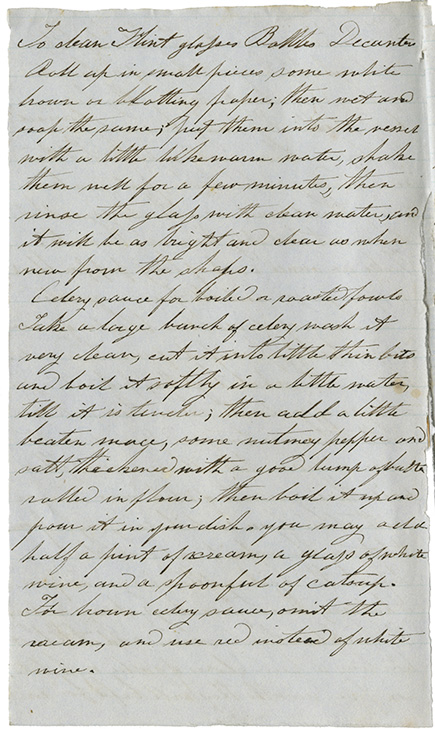 To clean Flint glasses Bottles Decanters
Roll up in small pieces some white
brown or blotting paper; then wet and
soap the same; put them into the vessel
with a little lukewarm water, shake
them well for a few minutes, then
rinse the glass with clean water, and
it will be as bright and clear as when
new from the shops.
Celery sauce for boiled or roasted fowls
Take a large bunch of celery wash it
very clean, cut it into little thin bits
and boil it softly in a little water,
till it is tender; then add a little
beaten mace, some nutmeg pepper and
salt, thickened with a good lump of butter
rolled in flour; then boil it up and
pour it in your dish. you may add
half a pint of cream, a glass of white
wine, and a spoonful of catsup.
For brown celery sauce, omit the
cream, and use red instead of white
wine.